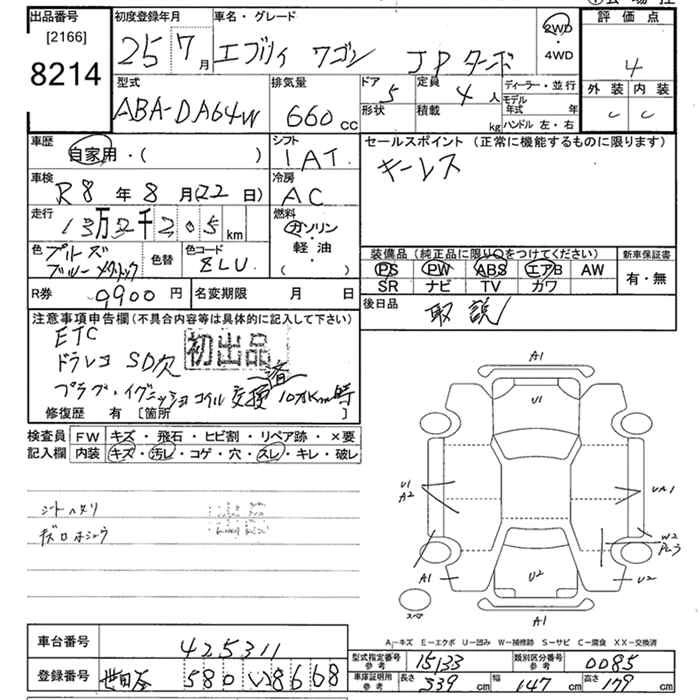 出品番号 初度登録年月 車名・グレード 2WD・4WD 評価点
[2166]
8214
25 7月 エブリィ ワゴン JPターボ 4
型式 排気量 ドア 定員 ディーラー・並行 外装 内装
ABA-DA64W 660cc 5 4人 モデル年式 年 C C
形状 積載 kg ハンドル 左・右
車歴 シフト セールスポイント (正常に機能するものに限ります)
自家用・( ) IAT キーレス
車検 冷房
R8年8月(22日) AC
走行 燃料
13万2千205km ガソリン・軽油・( )
色 色替 色コード 装備品 (純正品に限り○をつけてください) 新車保証書
ブルーメタリック ZLU PS PW ABS エアB AW 有・無
SR ナビ TV カワ
R券 9900円 名変期限 月 日 後日品
取説
注意事項申告欄(不具合内容等は具体的に記入して下さい)
ETC 初出品
ドラレコ SD欠 済
プラグ・イグニッションコイル交換 10万Km時
修復歴 有 [箇所 ]
検査員 FW キズ・飛石・ヒビ割・リペア跡・×要
記入欄 内装 キズ・汚レ・コゲ・穴・スレ・キレ・破レ
シートヘタリ
A1
U1
U1
A2
W2
A1
U2
U2
A1
スペア
A-キズ E-エクボ U-凹み W-補修跡 S-サビ C-腐食 XX-交換済
車台番号 425311
型式指定番号 参考 15133 類別区分番号 参考 0085
登録番号 世田谷 580 い 8668
車庫証明用 参考 長さ 339cm 幅 147cm 高さ 179cm